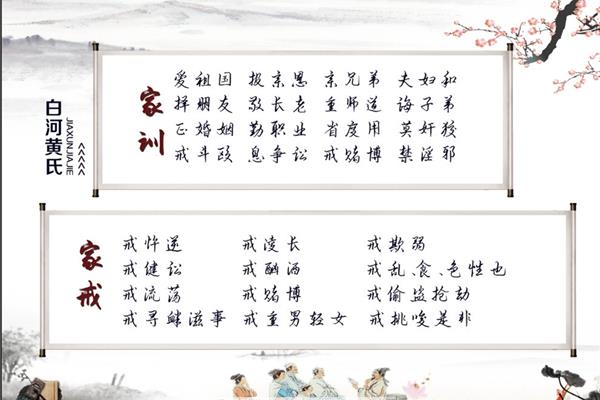 白河黄氏
JIAXUNJIAJIE
家训
爱祖国 报亲恩 亲兄弟 夫妇和
择朋友 敬长老 重师道 诲子弟
正婚姻 勤职业 省度用 莫奸狡
戒斗殴 息争讼 戒赌博 禁淫邪
家戒
戒忤逆 戒凌长 戒欺弱
戒健讼 戒酗酒 戒乱、食、色性也
戒流荡 戒赌博 戒偷盗抢劫
戒寻衅滋事 戒重男轻女 戒挑唆是非